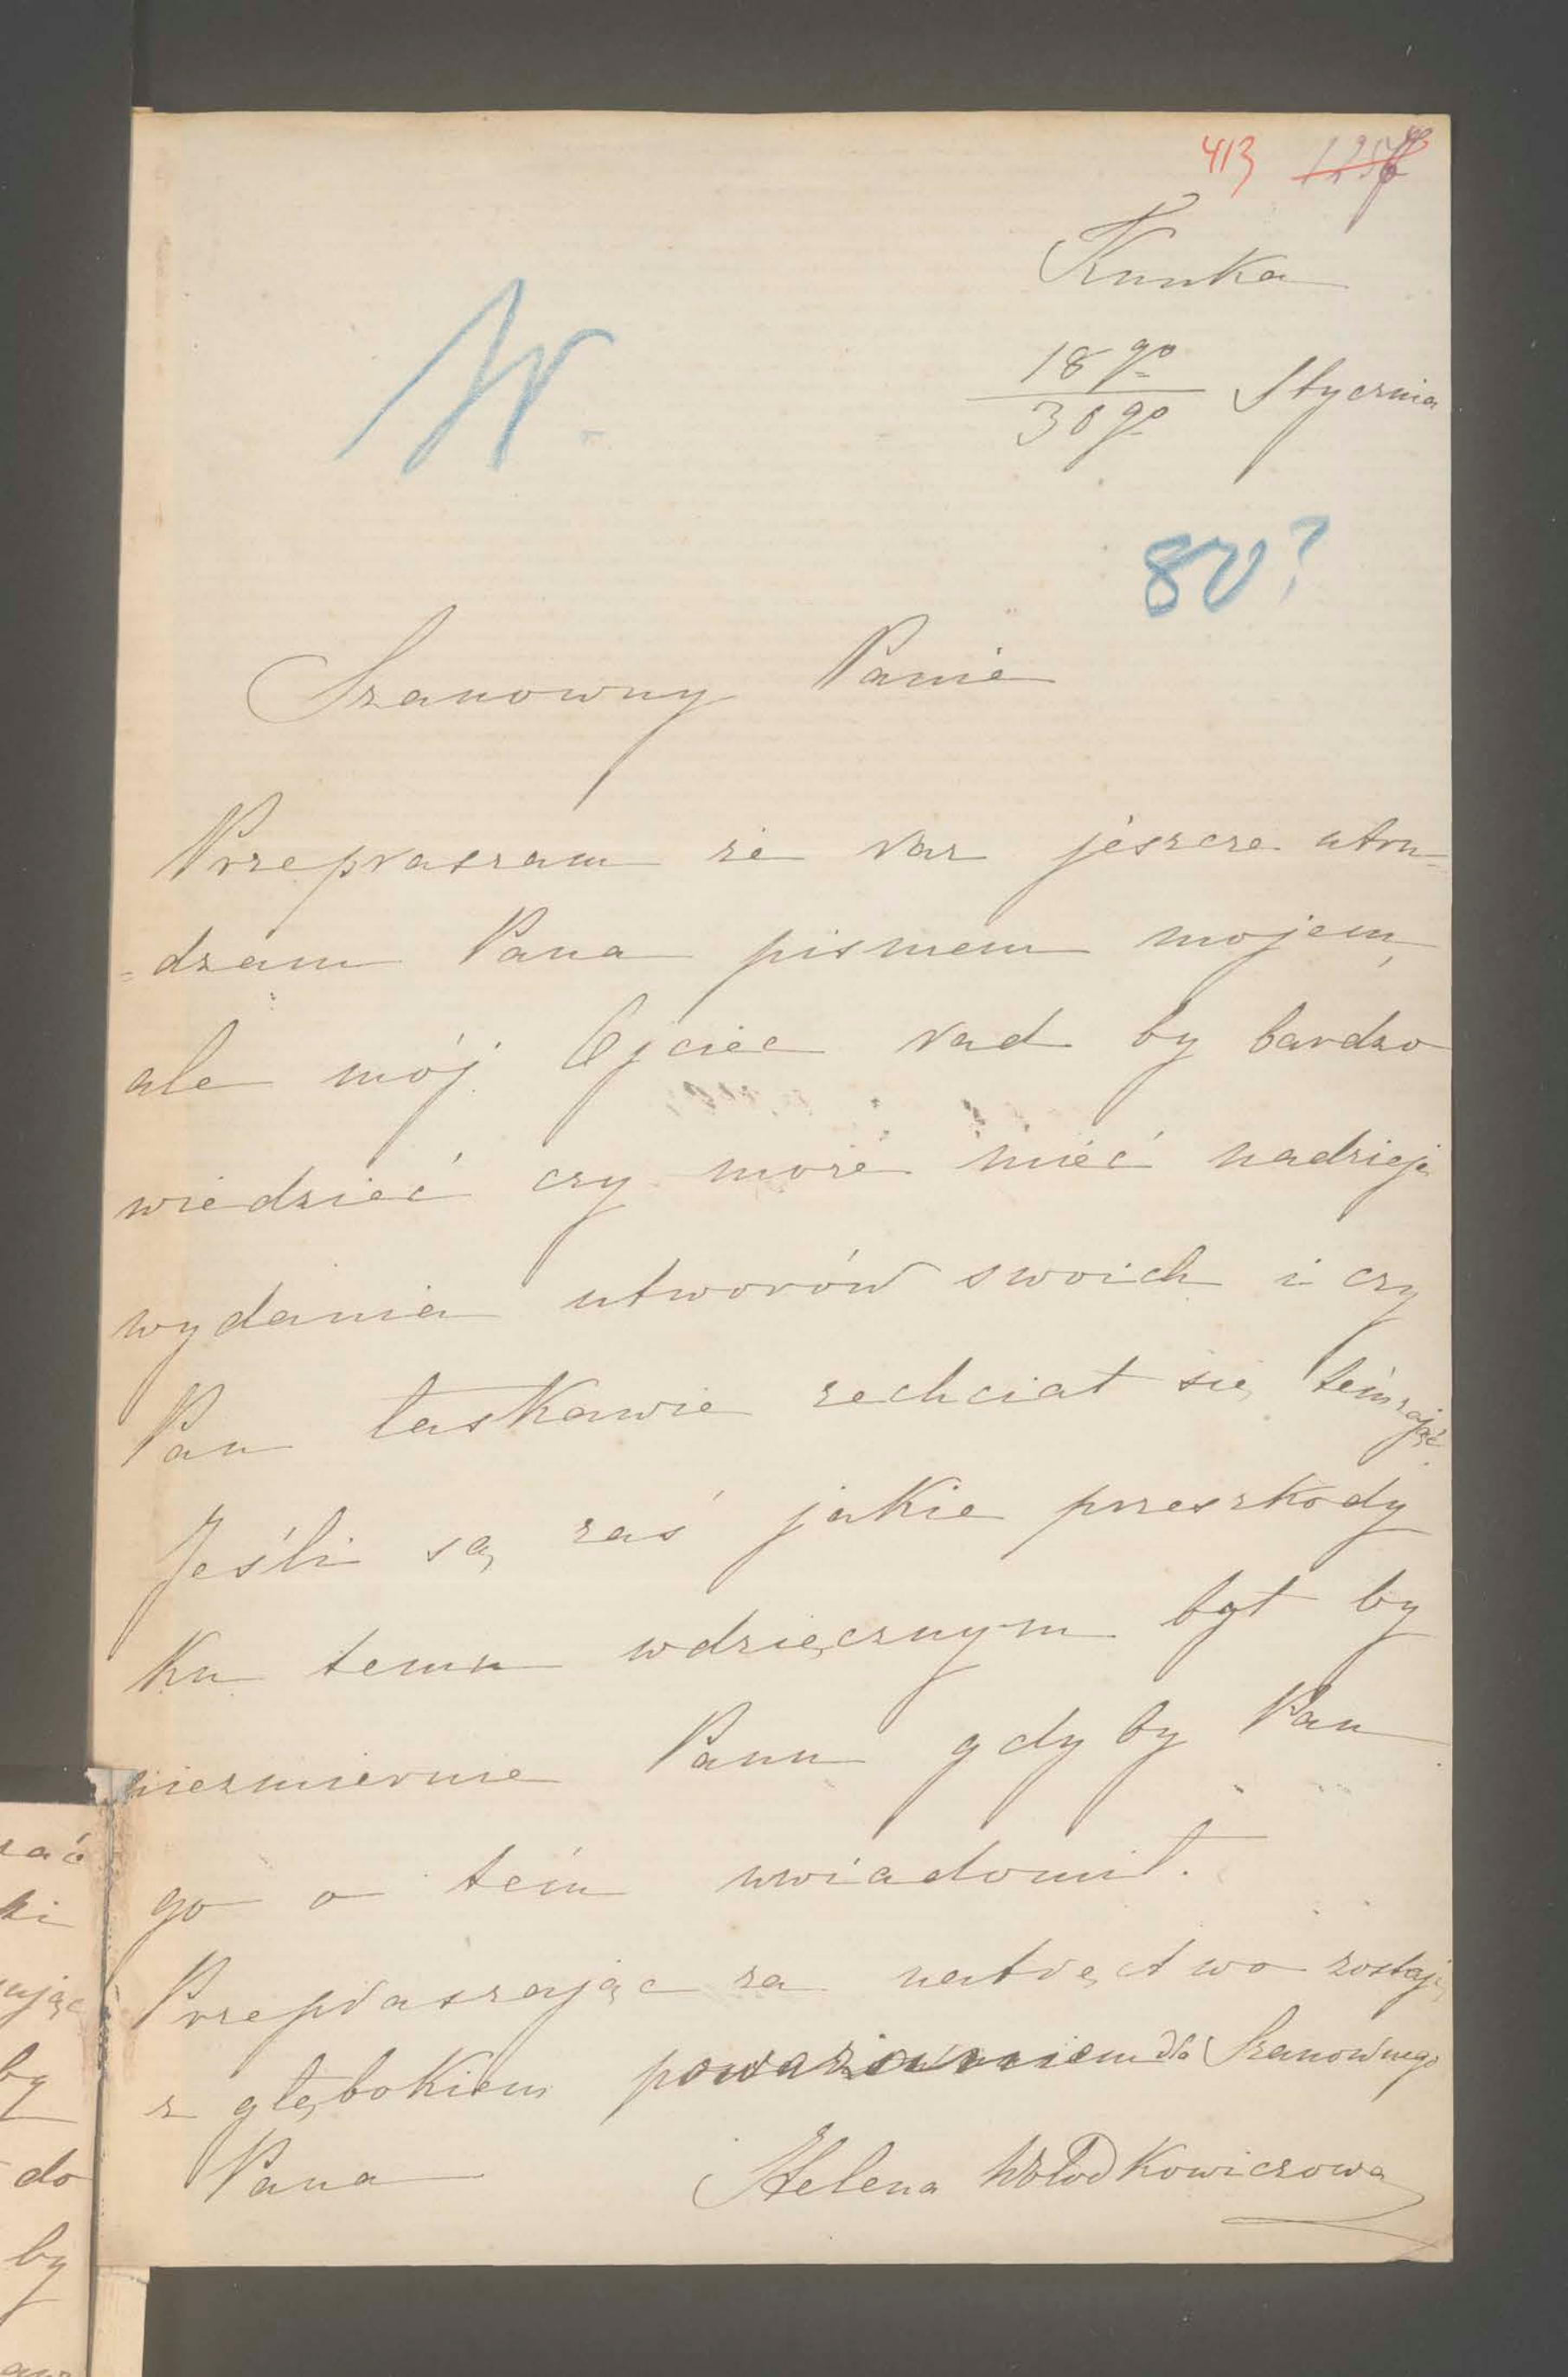 413
Kunka
18go
30go Stycznia
W.
80?
Szanowny Panie
Przepraszam że raz jeszcze utru=
=dzam Pana pismem mojem,
ale mój Ojciec rad by bardzo
wiedzieć czy może mieć nadzieję
wydania utworów swoich i czy
Pan łaskawie zechciał się tém zająć.
Jeśli są zaś jakie przeszkody
Ku temu wdzięcznym był by
niezmiernie Panu gdy by Pan
go o tém uwiadomił.
Przepraszając za natręctwo zostaję
z głębokiem poważaniem dla Szanownego
Pana Helena Włodkowiczowa
zać
ki
ując
by
do
by